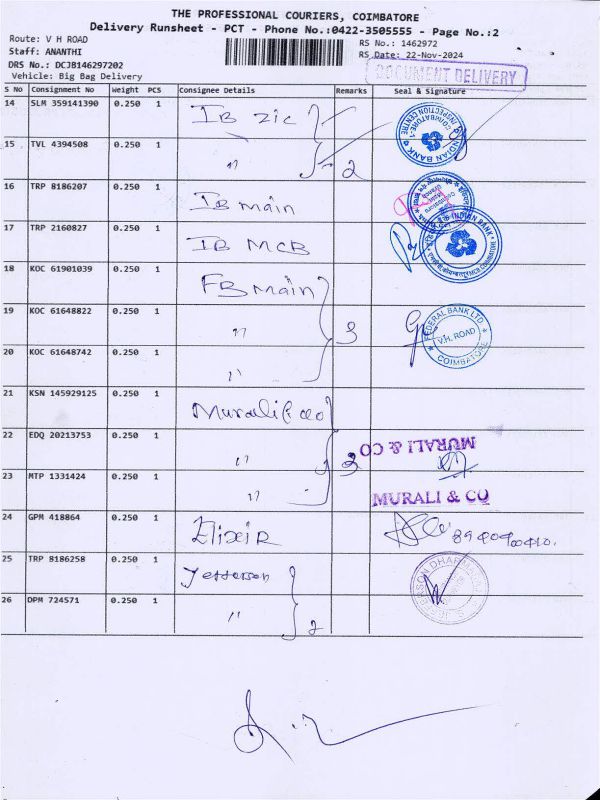 THE PROFESSIONAL COURIERS, COIMBATORE
Delivery Runsheet - PCT - Phone No.:0422-3505555 - Page No.:2
Route: V H ROAD
RS No.: 1462972
Staff: ANANTHI
RS Date: 22-Nov-2024
DRS No.: DCJB146297202
Vehicle: Big Bag Delivery
DOCUMENT DELIVERY
S No Consignment No Weight PCS Consignee Details Remarks Seal & Signature
14 SLM 359141390 0.250 1 IB ZIC
15 TVL 4394508 0.250 1 " 2
INDIAN BANK INSPECTION CENTRE COIMBATORE-1
16 TRP 8186207 0.250 1 IB main
17 TRP 2160827 0.250 1 IB MCB
INDIAN BANK MCB COIMBATORE
18 KOC 61901039 0.250 1 FB main
19 KOC 61648822 0.250 1 " 3
FEDERAL BANK LTD V.H. ROAD COIMBATORE
20 KOC 61648742 0.250 1 "
21 KSN 145929125 0.250 1 Murali & co
22 EDQ 20213753 0.250 1 " 3
MURALI & CO
23 MTP 1331424 0.250 1 "
MURALI & CO
24 GPM 418864 0.250 1 Elixir
25 TRP 8186258 0.250 1 Jefferson
26 DPM 724571 0.250 1 " 2